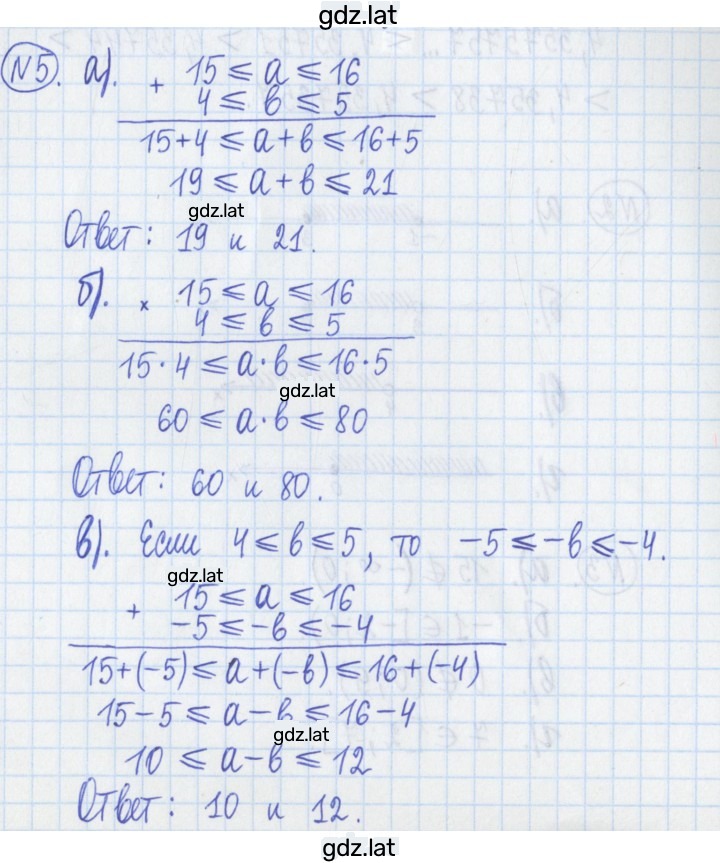 gdz.lat
№5. а). + 15 ⩽ a ⩽ 16
4 ⩽ в ⩽ 5
15+4 ⩽ a+в ⩽ 16+5
19 ⩽ a+в ⩽ 21
gdz.lat
Ответ: 19 и 21.
б). × 15 ⩽ a ⩽ 16
4 ⩽ в ⩽ 5
15·4 ⩽ a·в ⩽ 16·5
gdz.lat
60 ⩽ a·в ⩽ 80
Ответ: 60 и 80.
в). Если 4 ⩽ в ⩽ 5, то -5 ⩽ -в ⩽ -4.
gdz.lat
+ 15 ⩽ a ⩽ 16
-5 ⩽ -в ⩽ -4
15+(-5) ⩽ a+(-в) ⩽ 16+(-4)
15-5 ⩽ a-в ⩽ 16-4
gdz.lat
10 ⩽ a-в ⩽ 12
Ответ: 10 и 12.
gdz.lat